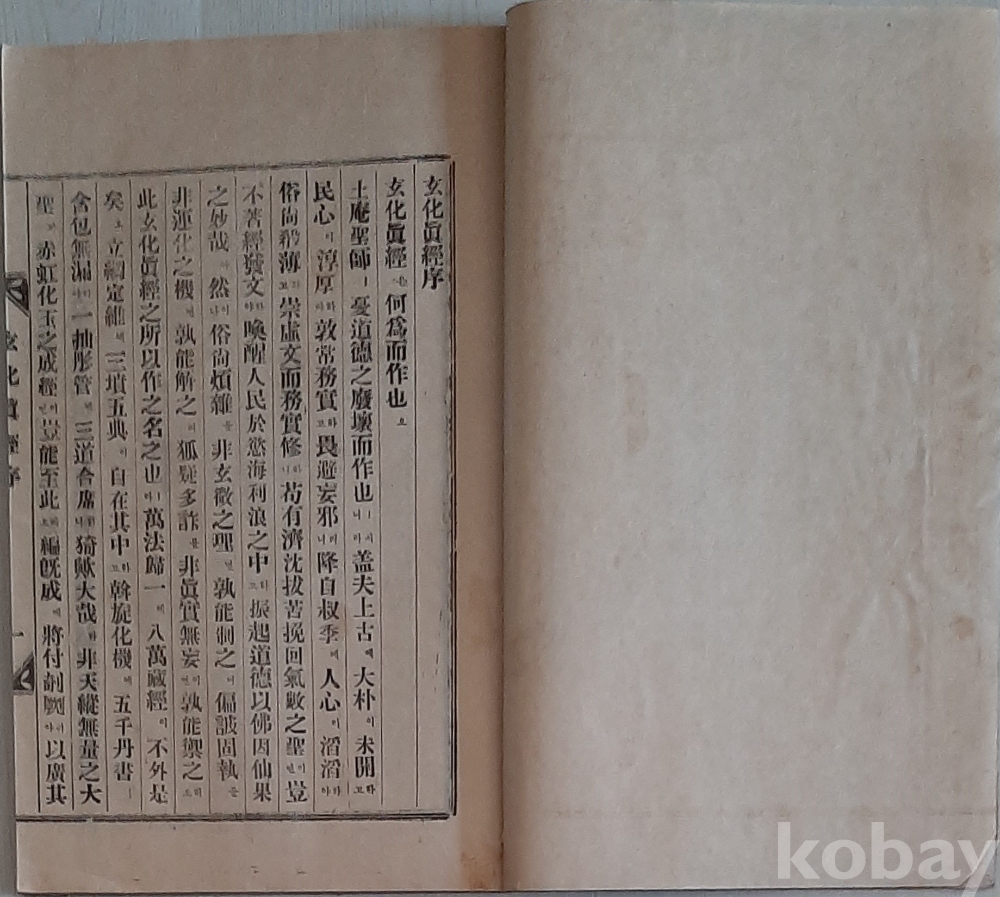 玄化眞經序
玄化眞經는何爲而作也요
土庵聖師ㅣ憂道德之廢壞而作也ㅣ시니라盖夫上古에大朴이未開하고
民心이淳厚하야敦常務實하고畏避妄邪하더니降自叔季에人心이滔滔하야
俗尙淆薄하고崇虛文而務實修하니苟有濟沈拔苦挽回氣數之聖인이豈
不著經發文하야喚醒人民於慾海利浪之中하고振起道德以佛因仙果
之妙哉아然이나俗尙煩雜을非玄微之理면孰能制之며偏詖固執을
非運化之機면孰能解之며狐疑多詐를非眞實無妄이면孰能禦之리오
此玄化眞經之所以作之名之也ㅣ라萬法歸一에八萬藏經이不外是
矣오立綱定維에三墳五典이自在其中하고斡旋化機에五千丹書ㅣ
含包無漏라一抽彤管에三道合席하니猗歟大哉라非天縱無量之大
聖과赤虹化玉之成經이면豈能至此리오編旣成에將付剞劂하야以廣其
玄化眞經序
一
kobay